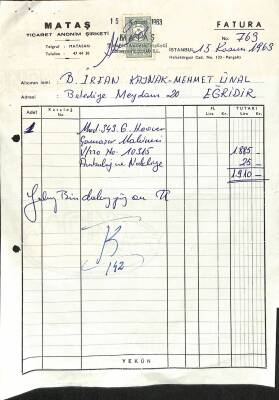 MATAŞ
TİCARET ANONİM ŞİRKETİ
Telgraf : MATASAN
Telefon : 47 44 36
15 Kasım 1963
MATAŞ
FATURA
No. 763
İSTANBUL, 15 Kasım 1963
Halaskârgazi Cad. No. 103 - Pangaltı
Alıcının ismi B. İRFAN KAYNAK - MEHMET ÜNAL
Adresi Belediye Meydanı 20 EGRİDİR
Adet Katalog No. Fi. Lira Kr. TUTARI Lira Kr.
1 Mod. 343.G. Hoover
Çamaşır Makinesi
No. 10315 1885 —
Ambalaj ve Nakliye 25 —
1.910 —
Yalnız Bindokuzyüz on TL
K
142
YEKÛN